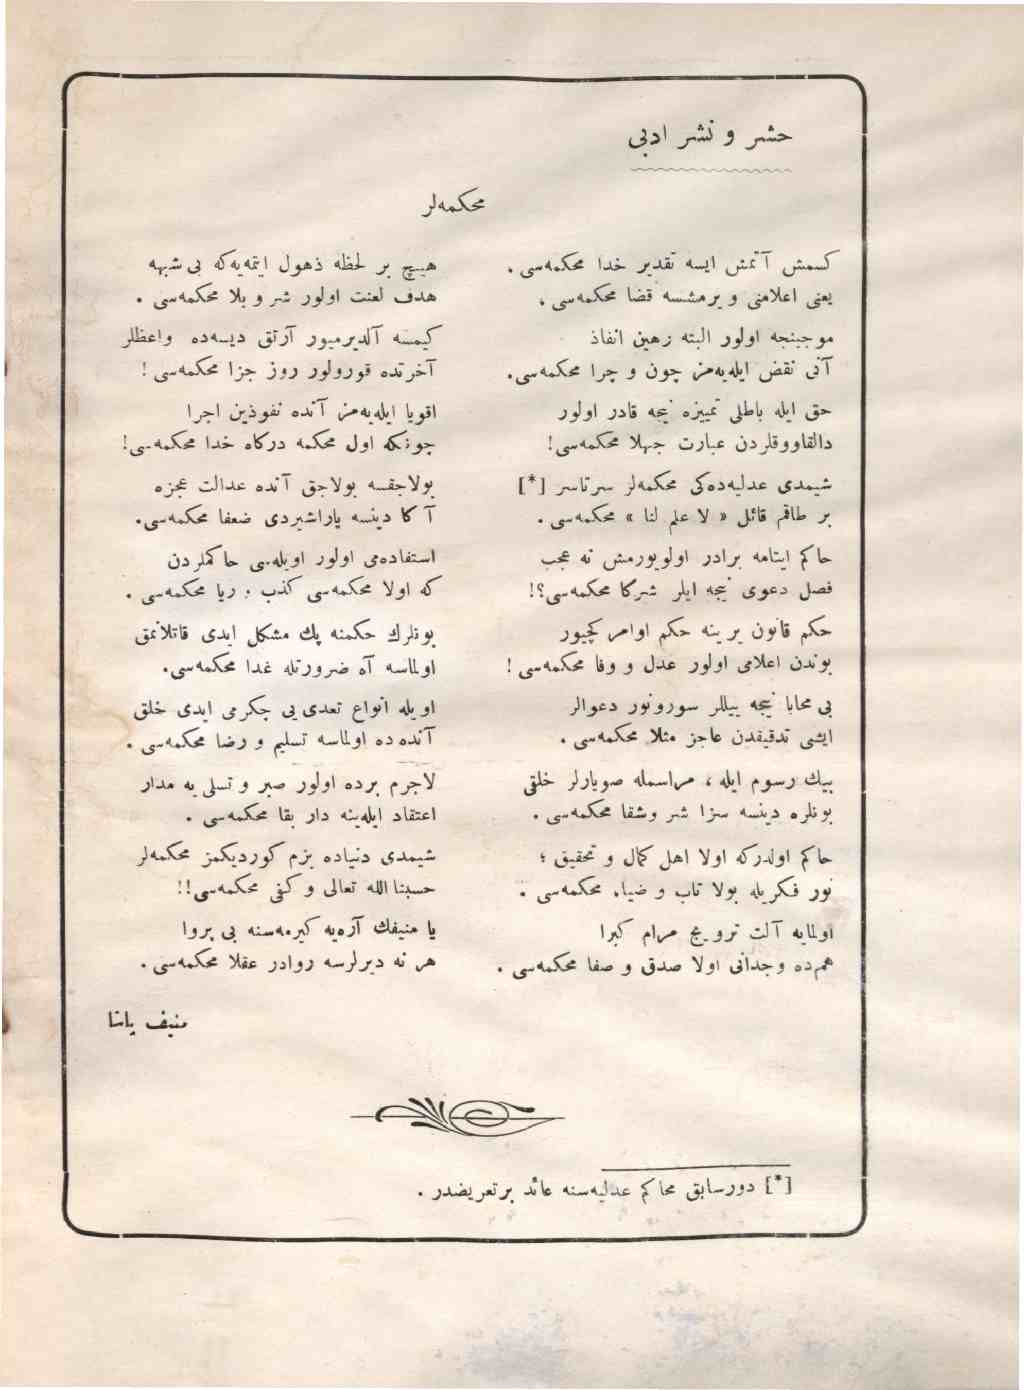 حشر و نشر ادبی
محكمه‌لر
كسمش آتمش ايسه تقدير خدا محكمه‌سی .
يعنی اعلامنی ويرمشسه قضا محكمه‌سی ،
موجبنجه اولور البته رهين انفاذ
آنی نقض ايليه‌مز چون و چرا محكمه‌سی .
حق ايله باطلی تمييزه نيجه قادر اولور
دالقاووقلردن عبارت جهلا محكمه‌سی !
شيمدی عدليه‌ده‌كی محكمه‌لر سرتاسر [*]
بر طاقم قائل « لا علم لنا » محكمه‌سی .
حاكم ايتامه برادر اوليويورمش نه عجب
فصل دعوی نيجه ايلر شركا محكمه‌سی؟!
حكم قانون يرينه حكم اوامر كچيور
بوندن اعلامی اولور عدل و وفا محكمه‌سی !
بی محابا نيجه ييللر سورونور دعوالر
ايشی تدقيقدن عاجز مثلا محكمه‌سی .
بيك رسوم ايله ، مراسمله صويارلر خلقی
بونلره دينسه سزا شر وشقا محكمه‌سی .
حاكم اولدركه اولا اهل كمال و تحقيق ؛
نور فكريله بولا تاب و ضياء محكمه‌سی .
اولمايه آلت ترويج مرام كبرا
هم‌ده وجدانی اولا صدق و صفا محكمه‌سی .
هيچ بر لحظه ذهول ايتميه‌كه بی شبهه
هدف لعنت اولور شر و بلا محكمه‌سی .
كيمسه آلديرميور آرتق ديسه‌ده واعظلر
آخرتده قورولور روز جزا محكمه‌سی !
اقويا ايليه‌مز آنده نفوذين اجرا
چونكه اول محكمه دركاه خدا محكمه‌سی !
بولاجقسه بولاجق آنده عدالت عجزه
آ كا دينسه ياراشيردی ضعفا محكمه‌سی .
استفاده‌می اولور اويله‌سی حاكملردن
كه اولا محكمه‌سی كذب و ريا محكمه‌سی .
بونلرك حكمنه پك مشكل ايدی قاتلانمق
اولماسه آه ضرورتله غدا محكمه‌سی .
اويله انواع تعدی‌يی چكرمی ايدی خلق
آنده‌ده اولماسه تسليم و رضا محكمه‌سی .
لاجرم برده اولور صبر و تسلی‌يه مدار
اعتقاد ايله‌ينه دار بقا محكمه‌سی .
شيمدی دنياده بزم كورديكمز محكمه‌لر
حسبنا الله تعالی و كفی محكمه‌سی !!
يا منيفك آزه‌يه كيرمه‌سنه بی پروا
هر نه ديرلرسه روادر عقلا محكمه‌سی .
منيف پاشا
[*] دورسابق محاكم عدليه‌سنه عائد برتعريضدر .